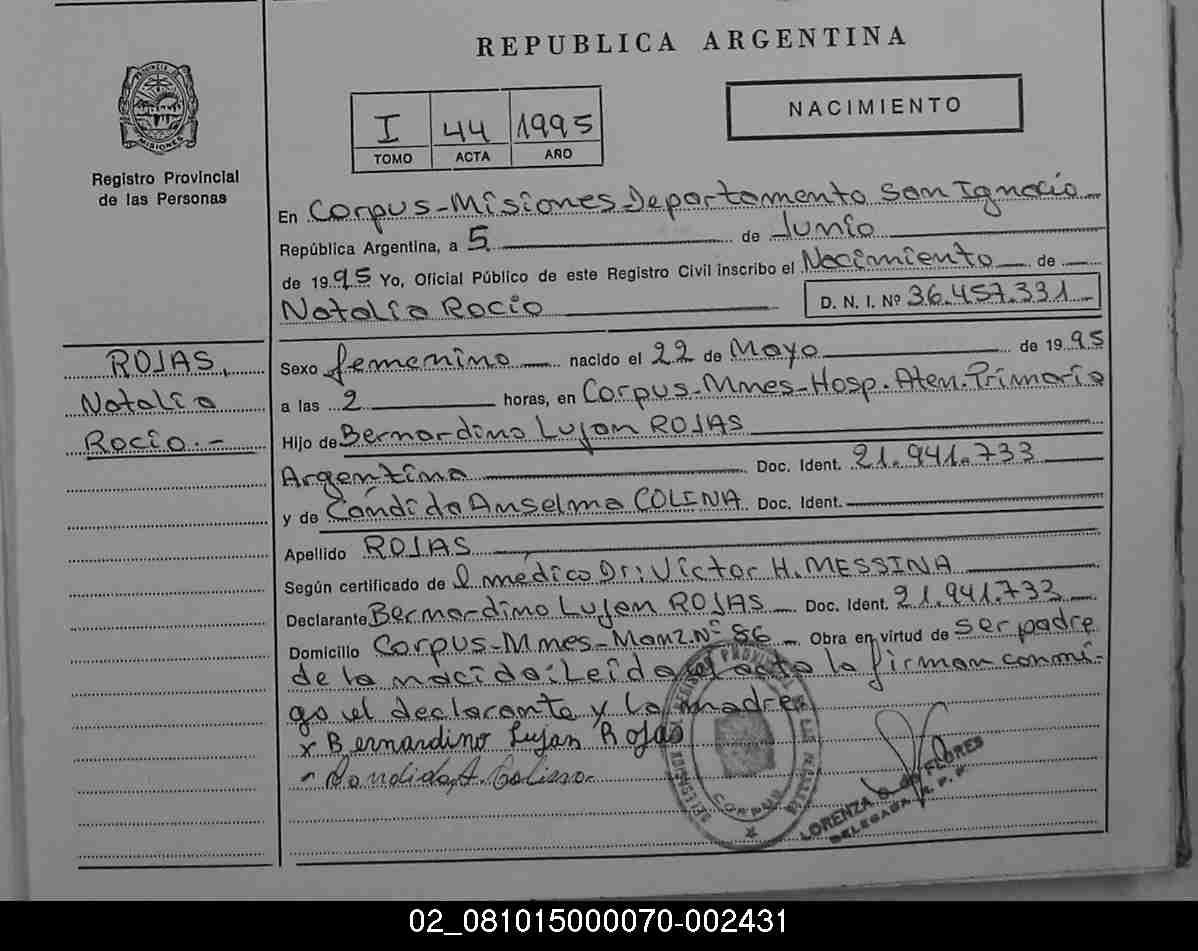 REPUBLICA ARGENTINA
PROVINCIA DE
MISIONES
Registro Provincial
de las Personas
I 44 1995
TOMO ACTA AÑO
NACIMIENTO
En Corpus-Misiones-Departamento San Ignacio
República Argentina, a 5 de Junio
de 1995 Yo, Oficial Público de este Registro Civil inscribo el Nacimiento de
Natalia Rocio D. N. I. Nº 36.457.331
ROJAS,
Natalia
Rocio.-
Sexo femenino nacido el 22 de Mayo de 1995
a las 2 horas, en Corpus-Mnes-Hosp. Aten. Primaria
Hijo de Bernardino Lujan ROJAS
Argentina Doc. Ident. 21.941.733
y de Cándida Anselma COLINA Doc. Ident.
Apellido ROJAS
Según certificado de l médico Dr: Victor H. MESSINA
Declarante Bernardino Lujan ROJAS Doc. Ident. 21.941.733
Domicilio Corpus-Mnes-Manz. Nº 86 Obra en virtud de ser padre
de la nacida: Leida el acta la firman conmi-
go el declarante y la madre
x Bernardino Lujan Rojas
CORPUS
LORENZA G. de FLORES
DELEGADA R. P. P.
02_081015000070-002431